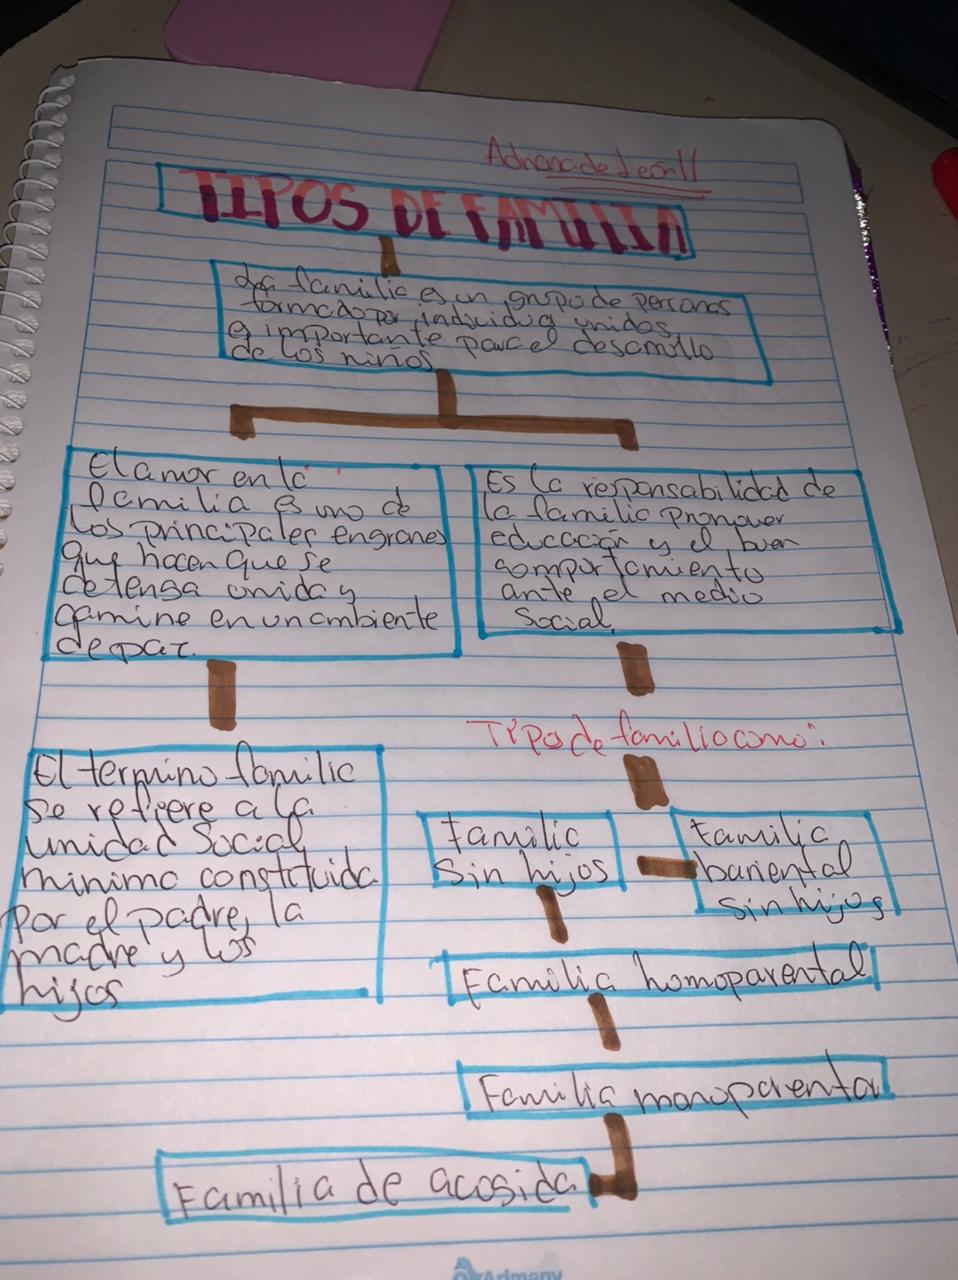 Adriana de León
TIPOS DE FAMILIA
La familia es un grupo de personas
formado por individuos unidos
e importante para el desarrollo
de los niños
El amor en la
familia es uno de
los principales engranes
que hacen que se
detenga unida y
camine en un ambiente
de paz.
Es la responsabilidad de
la familia pronover
educación y el buen
comportamiento
ante el medio
social.
Tipo de familia como:
El termino familia
se refiere a la
unidad social
minimo constituida
por el padre, la
madre y los
hijos
Familia
Sin hijos
Familia
bariental
Sin hijos
Familia homoparental
Familia monoparental
Familia de acosida
Arimany